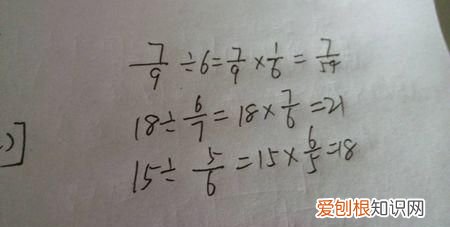 7/9 ÷6=7/9×1/6=7/54
18÷6/7=18×7/6=21
15÷5/6=15×6/5=18
)]
爱刨根知识网